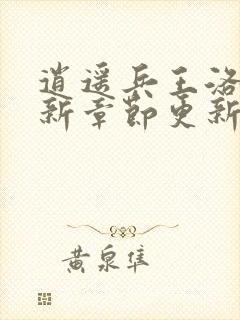 逍遥兵王洛
新章节更新
黄泉隼